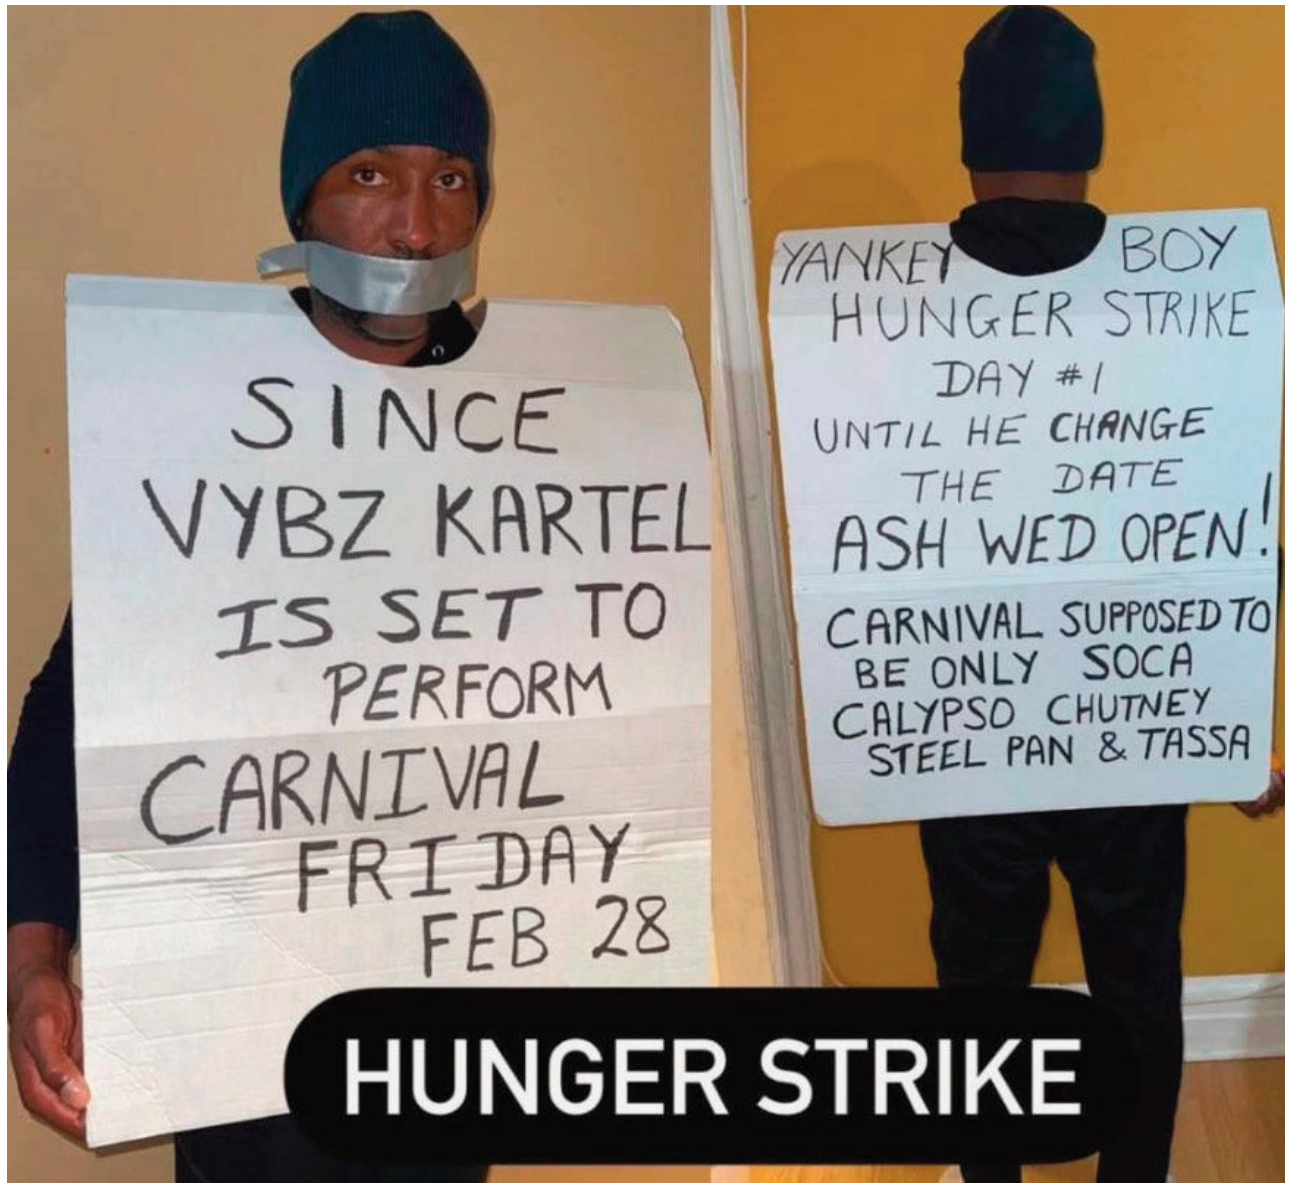 SINCE
VYBZ KARTEL
IS SET TO
PERFORM
CARNIVAL
FRIDAY
FEB 28
YANKEY BOY
HUNGER STRIKE
DAY #1
UNTIL HE CHANGE
THE DATE
ASH WED OPEN!
CARNIVAL SUPPOSED TO
BE ONLY SOCA
CALYPSO CHUTNEY
STEEL PAN & TASSA
HUNGER STRIKE